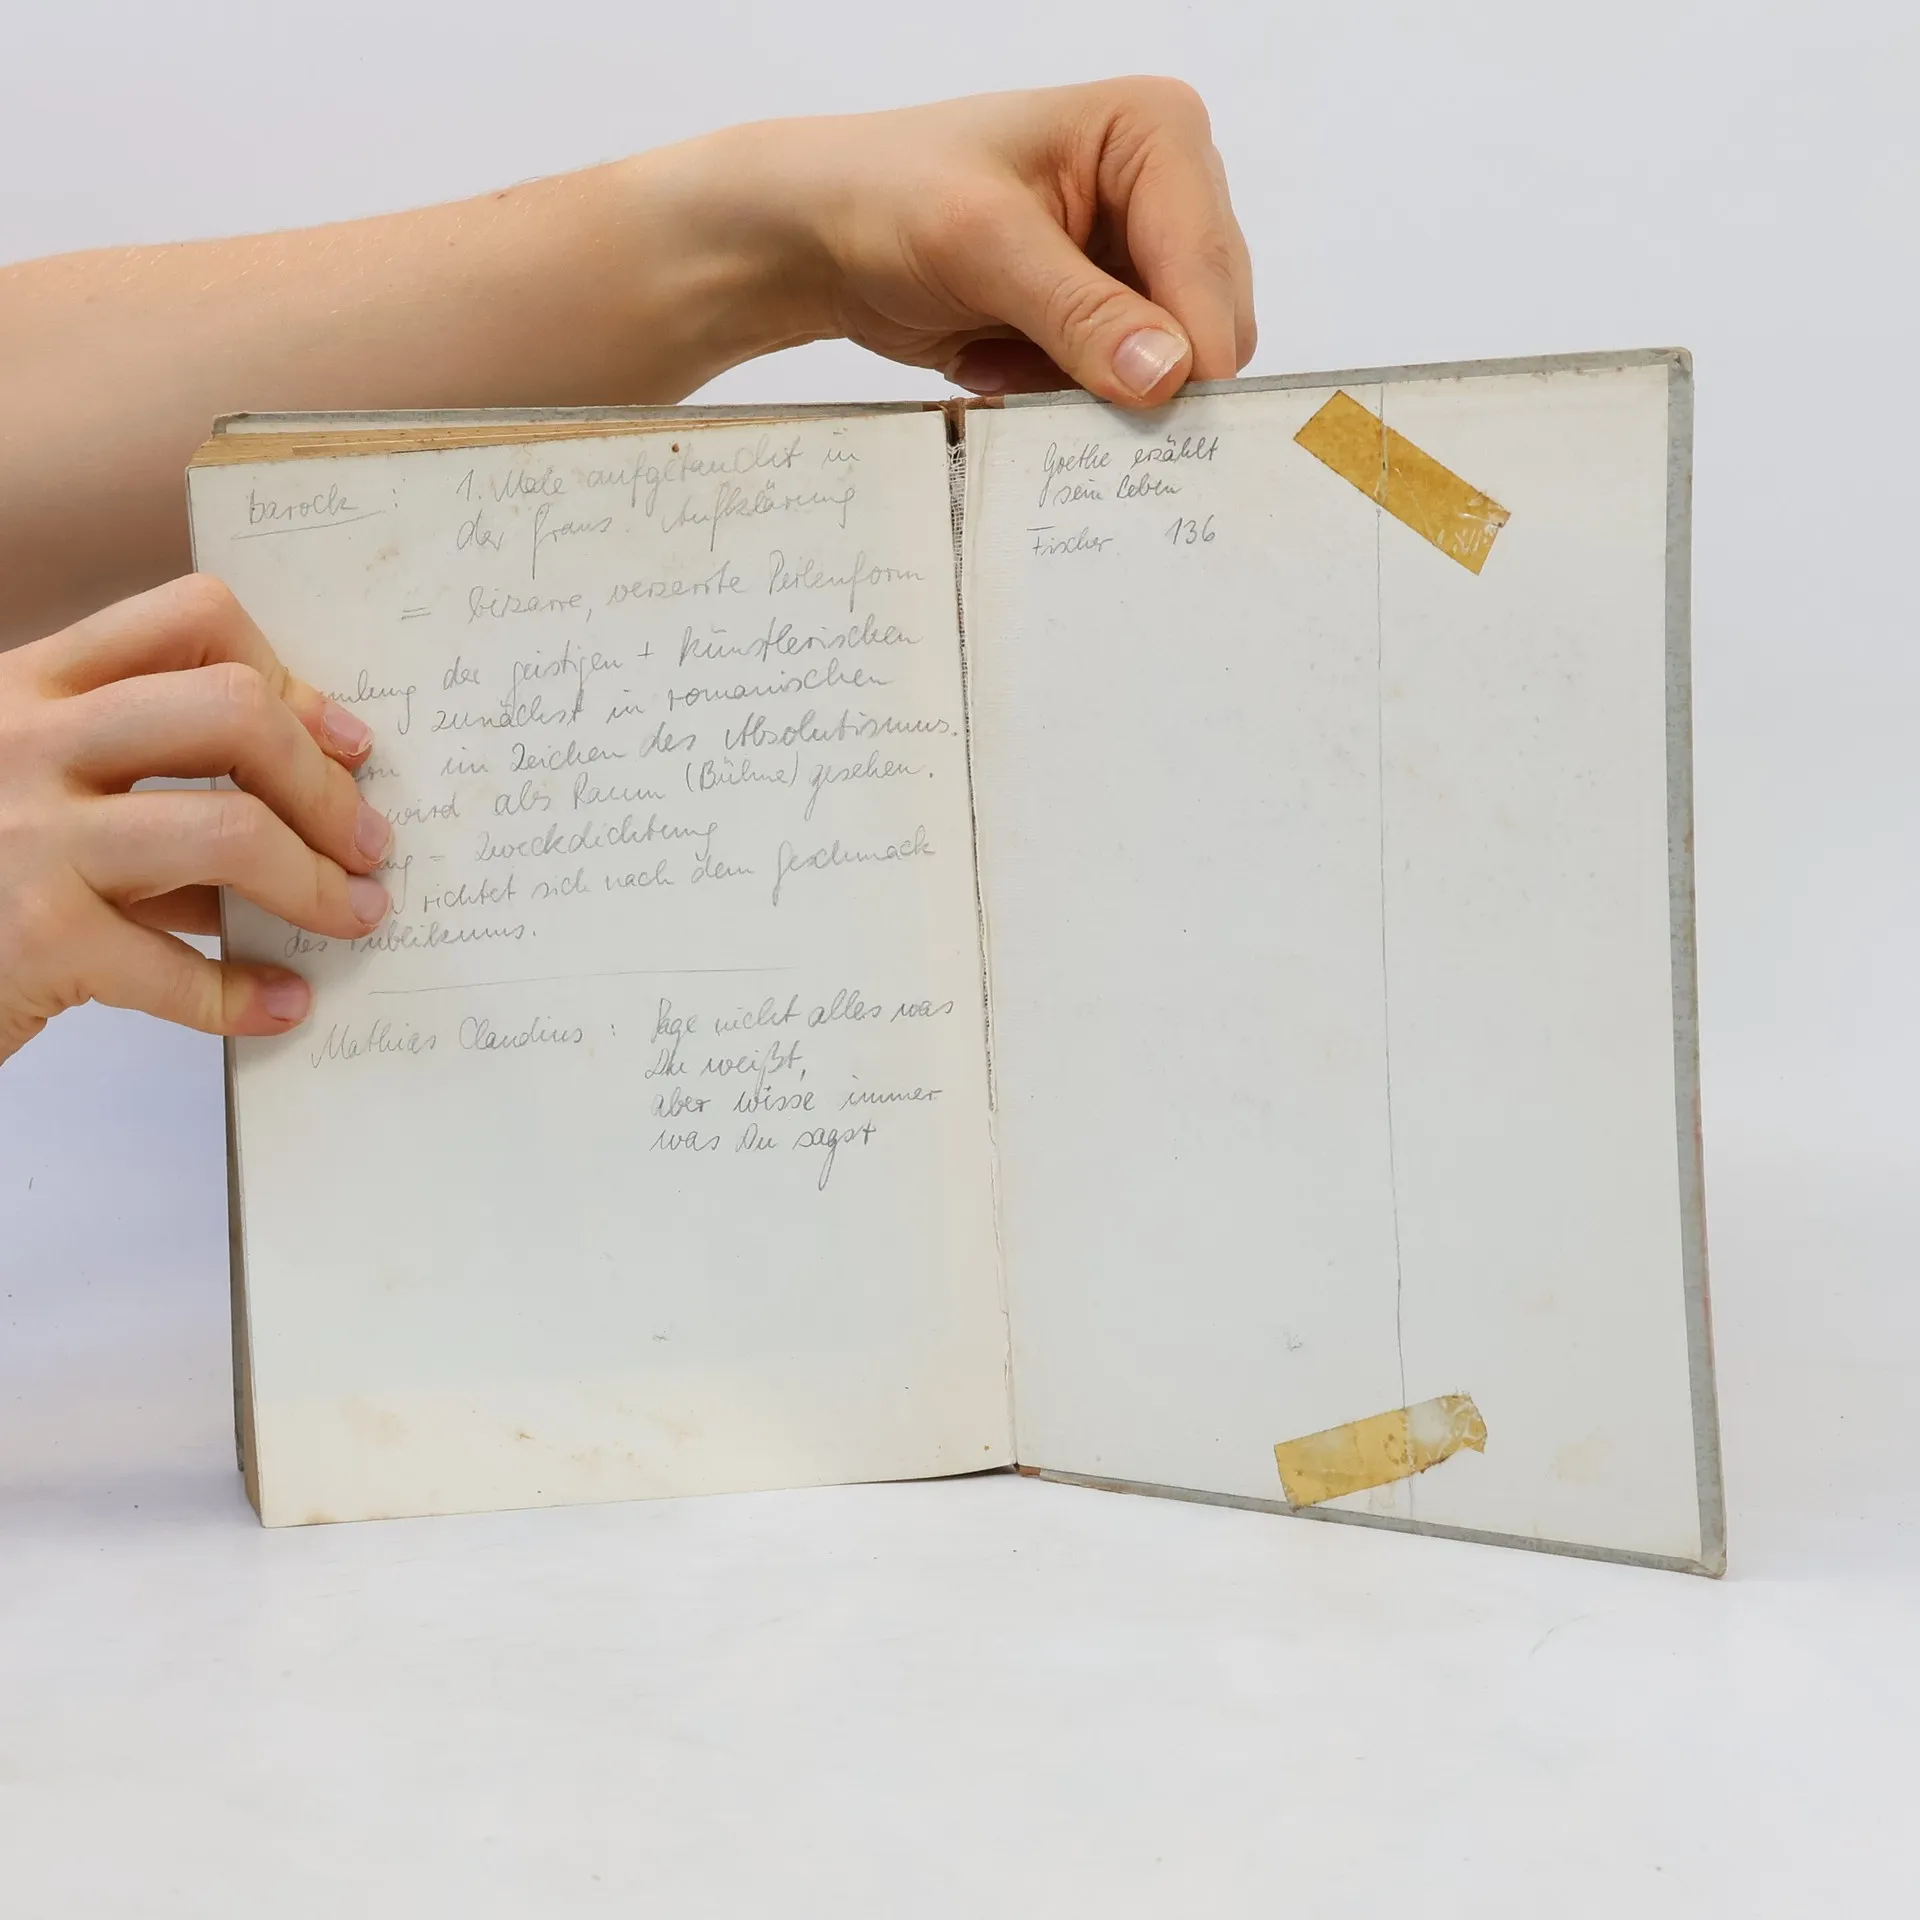 barock : 1. Male aufgetaucht in
der franz. Aufklärung
= bizarre, verzerrte Perlenform
der geistigen + künstlerischen
zunächst in romanischen
im Zeichen des Absolutismus.
wird als Raum (Bühne) gesehen.
= Zweckdichtung
richtet sich nach dem Geschmack
des Publikums.
Mathias Claudius : Sage nicht alles was
Du weißt,
aber wisse immer
was Du sagst
Goethe erzählt
sein Leben
Fischer 136